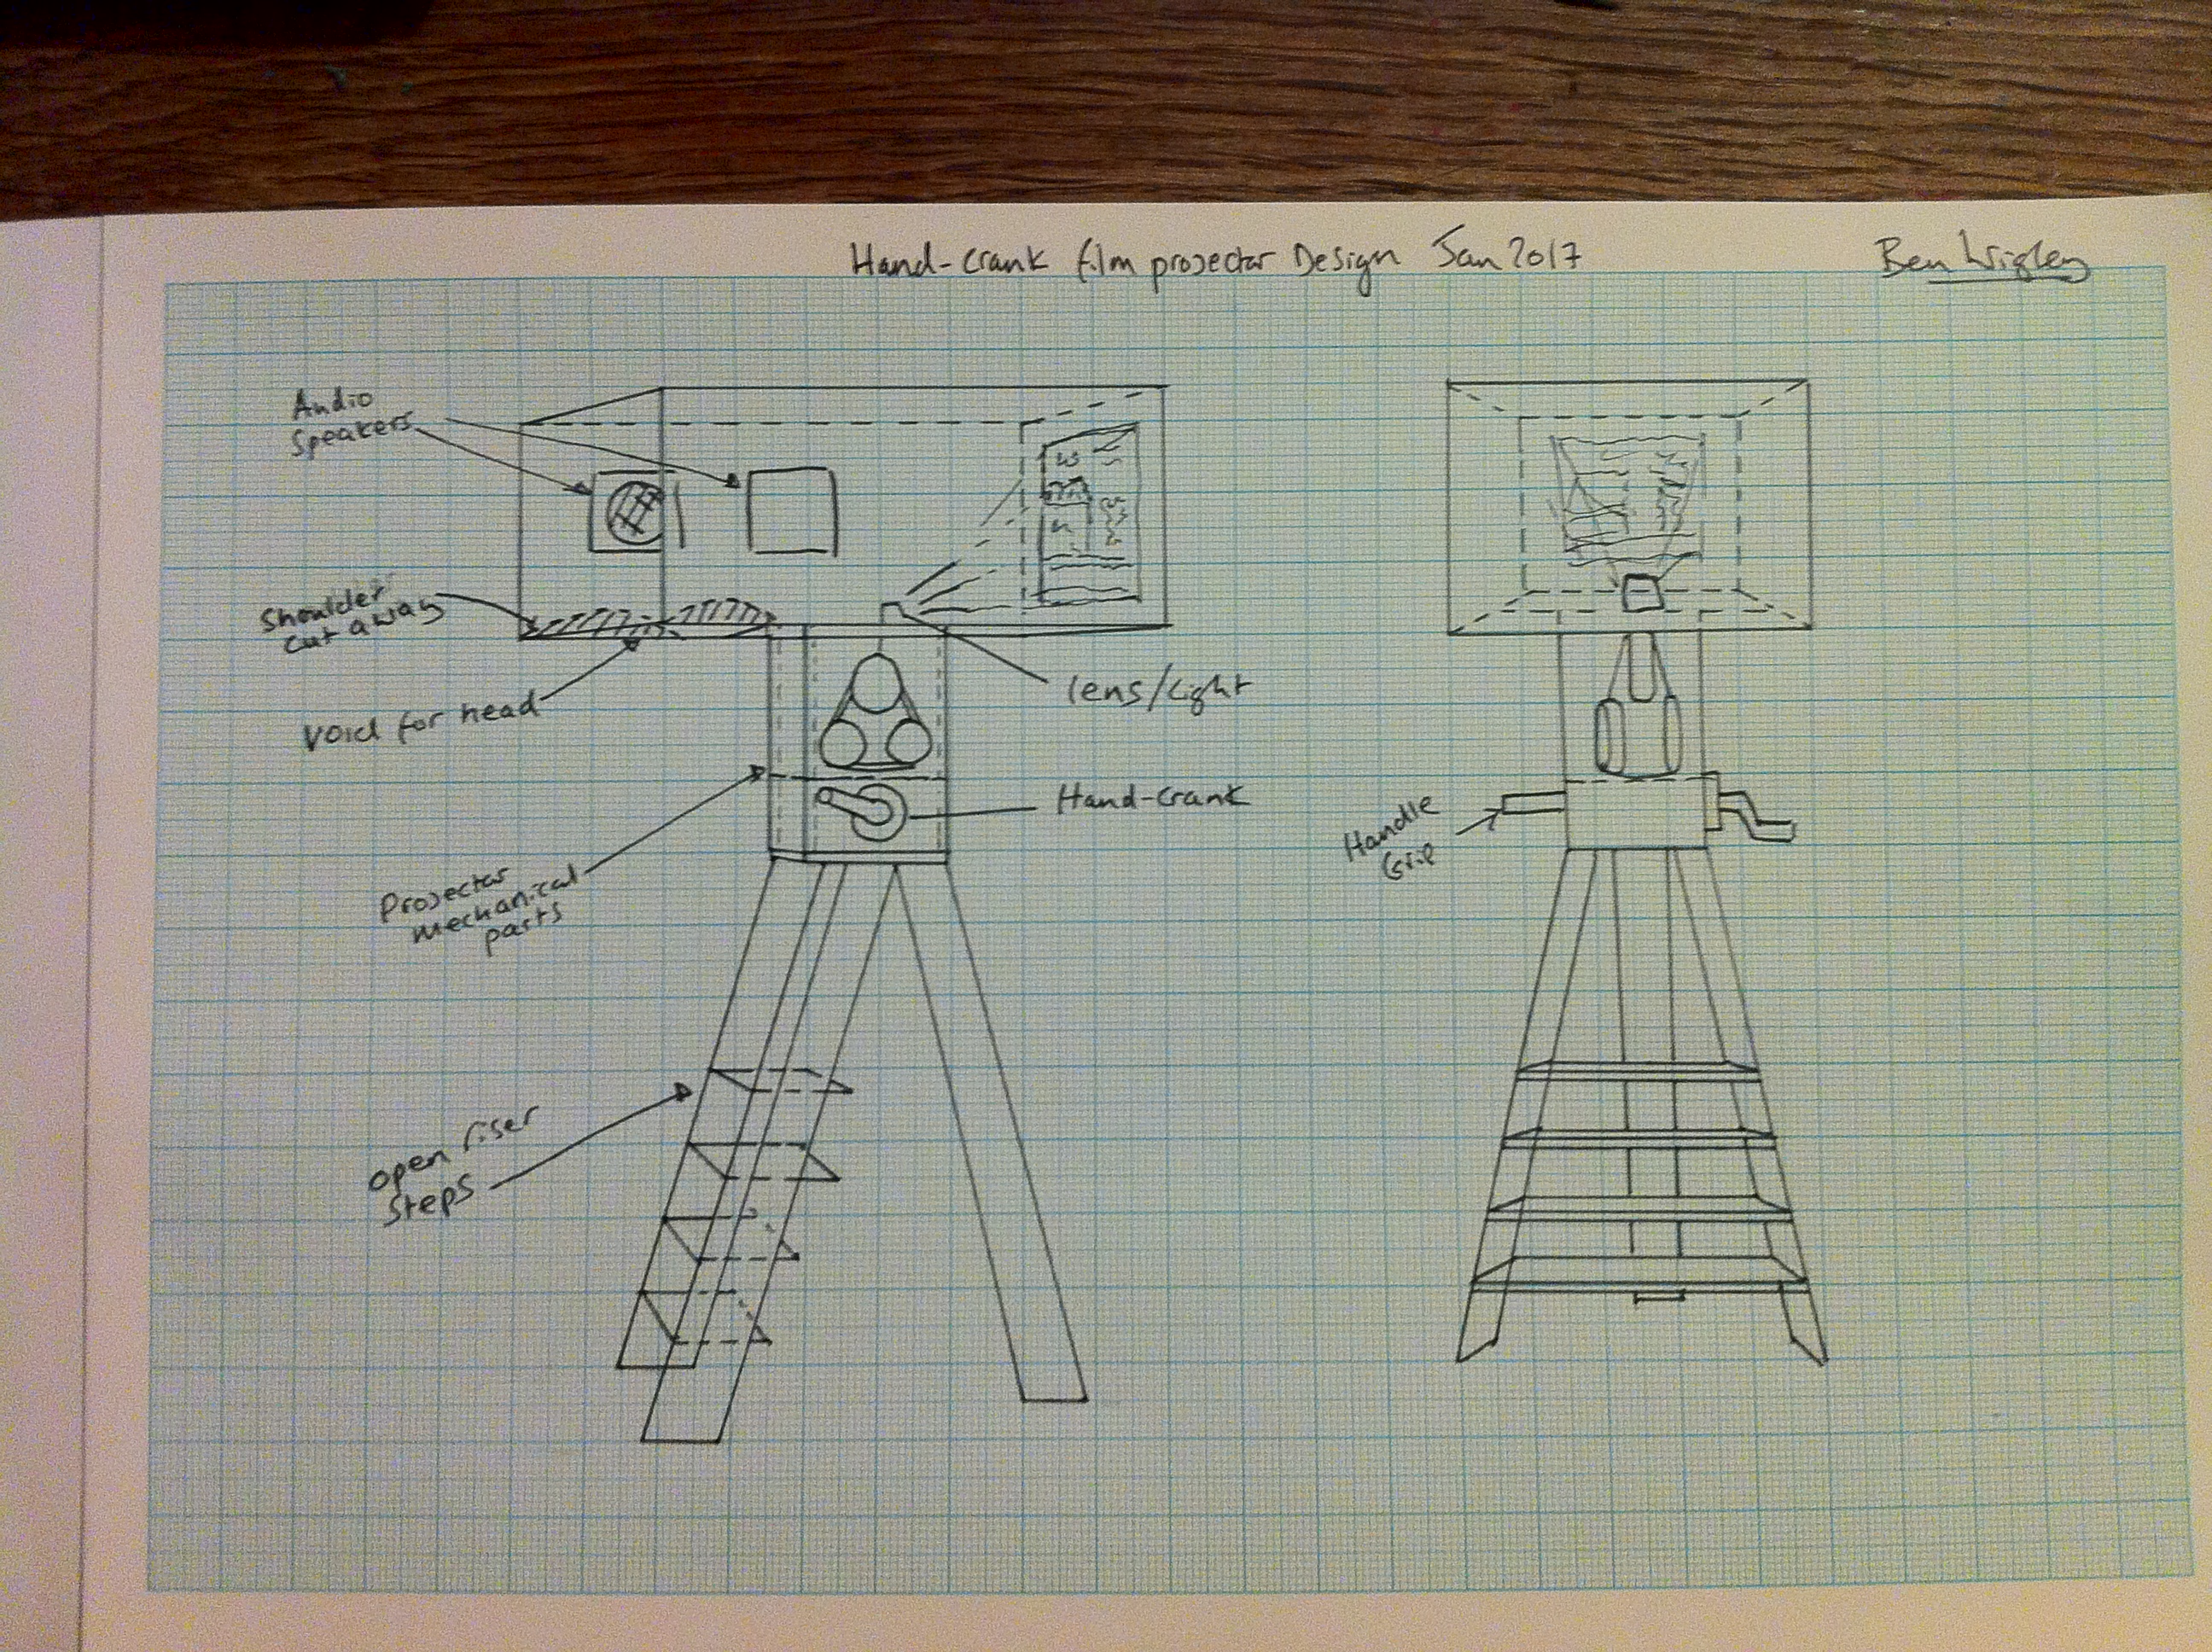 Hand-crank film projector Design Jan 2017
Ben Wigley
Audio
Speakers
Shoulder
cut away
Void for head
Projector
mechanical
parts
open riser
steps
lens/light
Hand-crank
Handle
Grip